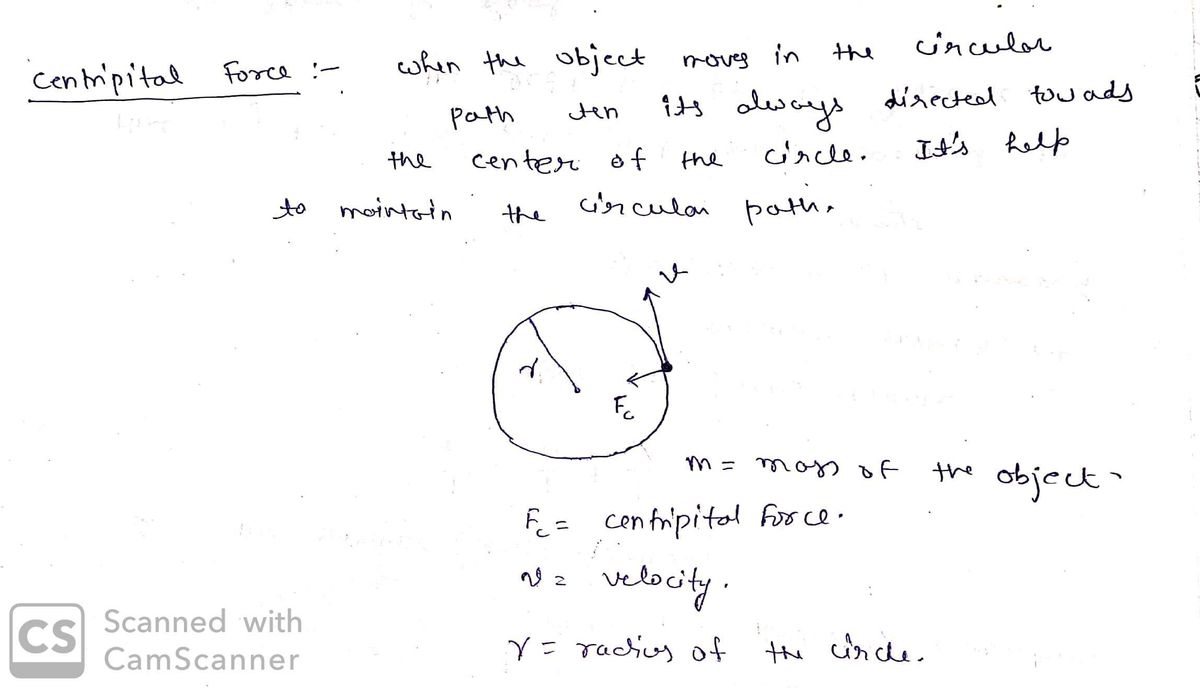 centripital Force :- when the object moves in the circular
path ten its always directed towads
the center of the circle. It's help
to maintain the circular path.
v
r
Fc
m = mass of the object.
Fc = centripital force.
v = velocity.
r = radius of the circle.
CS Scanned with
CamScanner